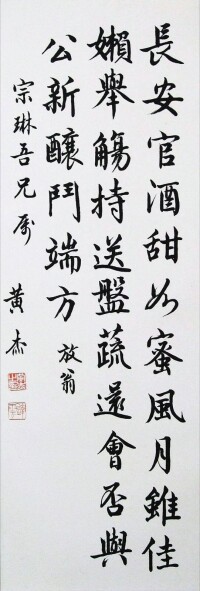 長安官酒甜如蜜風月雖佳
嬾舉觴持送盤蔬還會否與
公新釀鬥端方 放翁
宗琳吾兄屬 黃杰